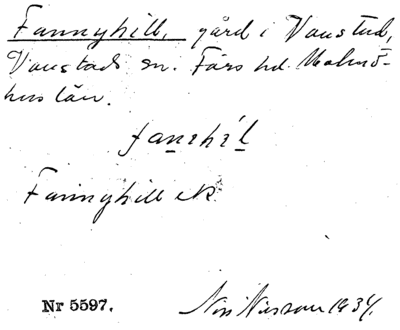 Fannyhill, gård i Vanstad,
Vanstads sn. Färs hd. Malmö-
hus län.
fanihil
Fannyhill ek
Nr 5597.
Nils Nilsson 1934.